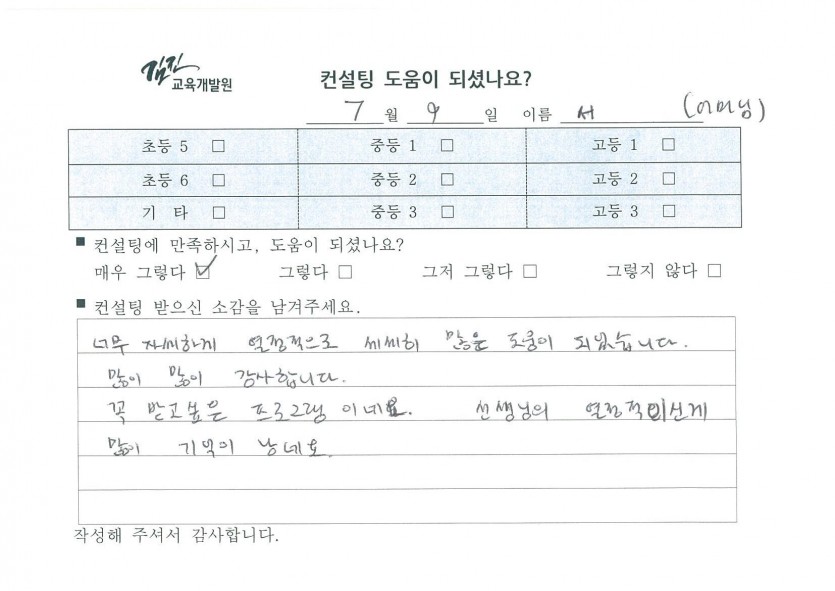 김진
교육개발원
컨설팅 도움이 되셨나요?
7월 9일 이름 서 (어머님)
초등 5 □ 중등 1 □ 고등 1 □
초등 6 □ 중등 2 □ 고등 2 □
기 타 □ 중등 3 □ 고등 3 □
■ 컨설팅에 만족하시고, 도움이 되셨나요?
매우 그렇다 ☑ 그렇다 □ 그저 그렇다 □ 그렇지 않다 □
■ 컨설팅 받으신 소감을 남겨주세요.
너무 자세하게 열정적으로 세세히 많은 도움이 되었습니다.
많이 많이 감사합니다.
꼭 받고싶은 프로그램이네요. 선생님의 열정적이신게
많이 기억이 남네요
작성해 주셔서 감사합니다.